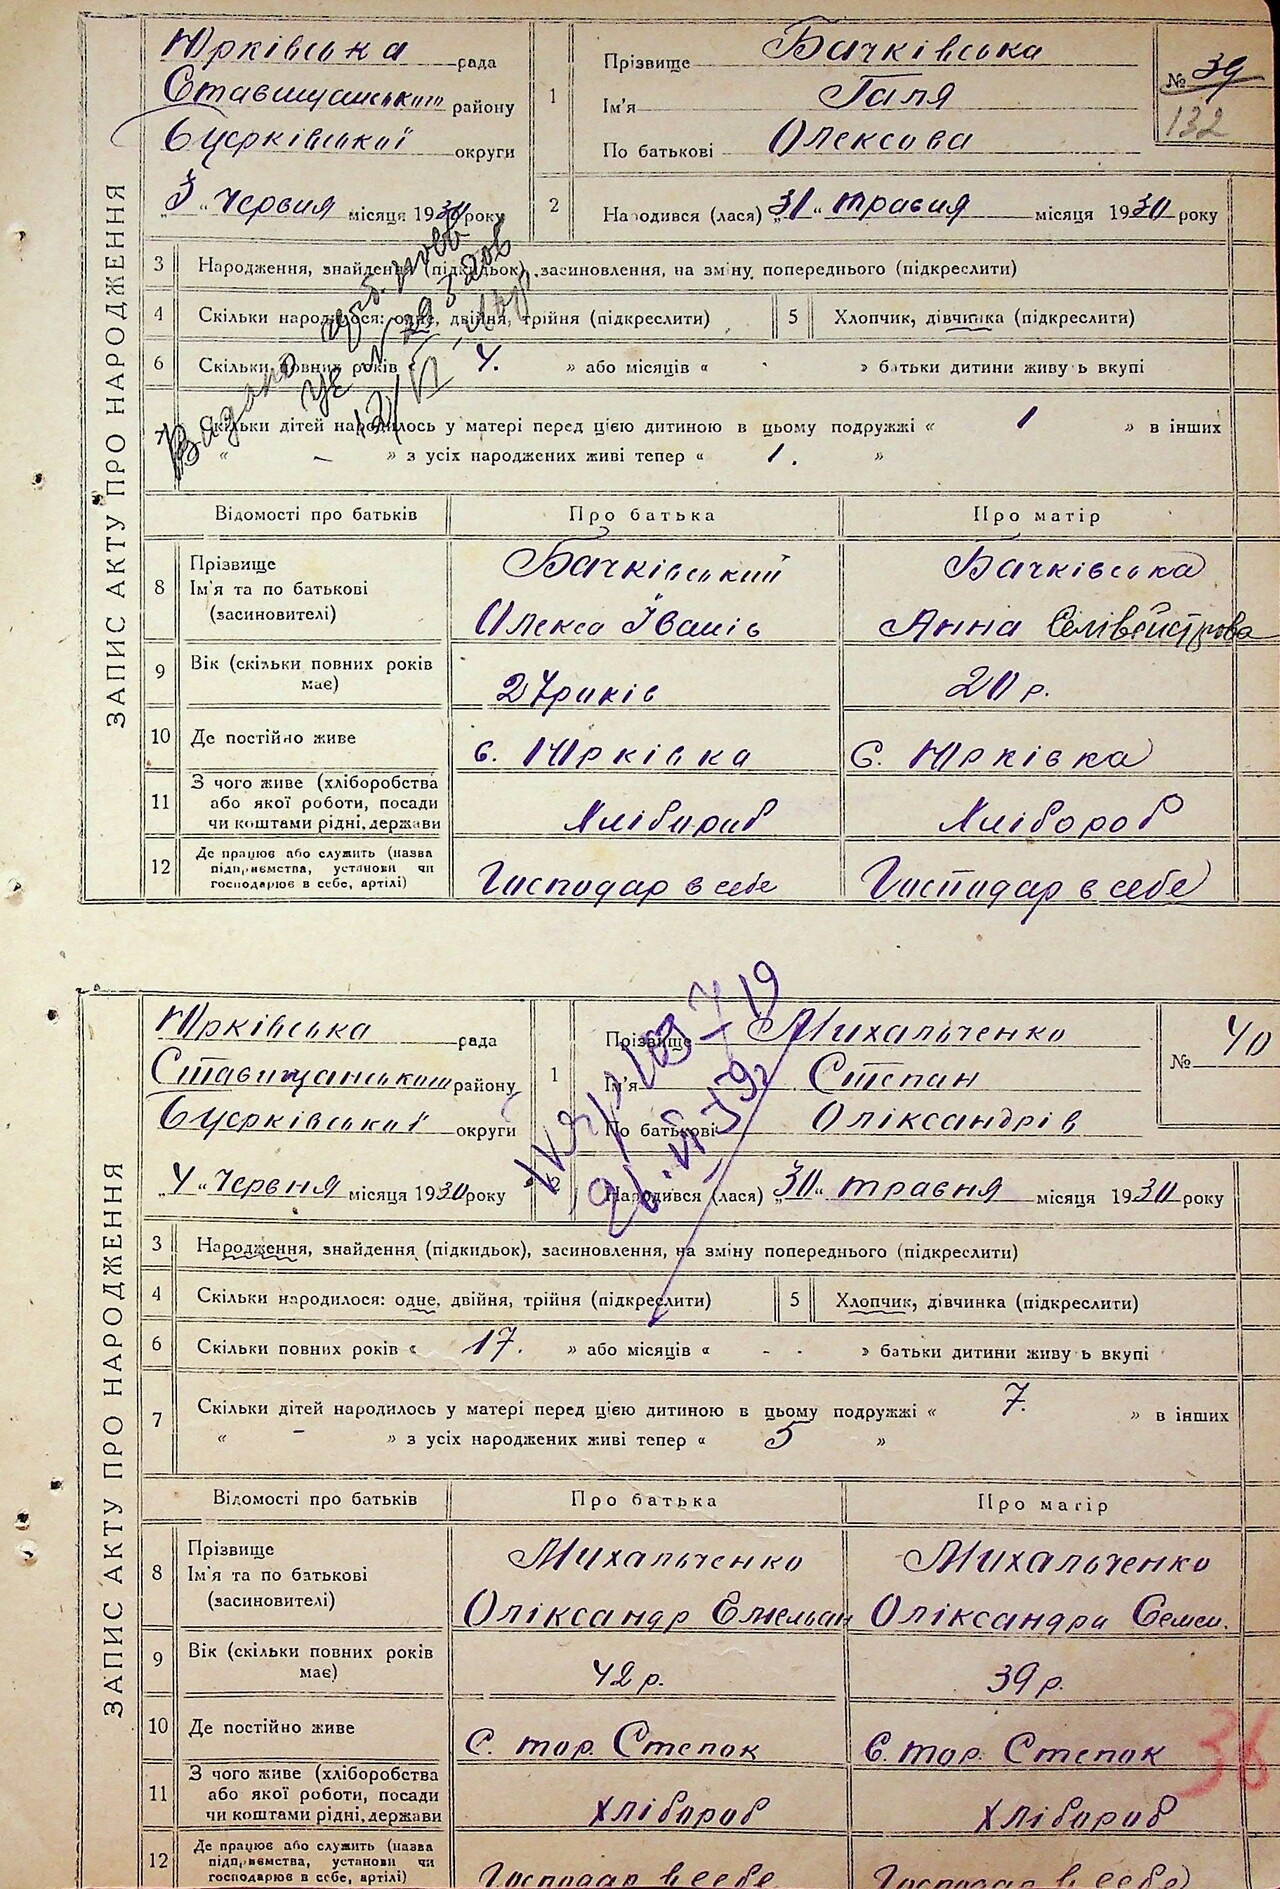 ЗАПИС АКТУ ПРО НАРОДЖЕННЯ
Юрківська рада
Ставищанського району
Бцерківської округи
„3“ червня місяця 1930 року
1
Прізвище Бачківська
Ім'я Галя
По батькові Олексова
№ 39
132
2 Народився (лася) „31“ травня місяця 1930 року
3 Народження, знайдення (підкидьок), засиновлення, на зміну попереднього (підкреслити)
4 Скільки народилося: одне, двійня, трійня (підкреслити) 5 Хлопчик, дівчинка (підкреслити)
6 Скільки повних років « 4. » або місяців « - » батьки дитини живуть вкупі
7 Скільки дітей народилось у матері перед цією дитиною в цьому подружжі « 1 » в інших
« — » з усіх народжених живі тепер « 1. »
Видано
Відомості про батьків Про батька Про матір
8 Прізвище Бачківський Бачківська
Ім'я та по батькові
(засиновителі) Олекса Іванів Анна Селівейстрова
9 Вік (скільки повних років має) 24 років 20 р.
10 Де постійно живе с. Юрківка с. Юрківка
11 З чого живе (хліборобства
або якої роботи, посади
чи коштами рідні, держави Хлібороб Хлібороб
12 Де працює або служить (назва
підприємства, установи чи
господарює в себе, артілі) Господар в себе Господар в себе
ЗАПИС АКТУ ПРО НАРОДЖЕННЯ
Юрківська рада
Ставищанського району
Бцерківської округи
„4“ червня місяця 1930 року
1
Прізвище Михальченко
Ім'я Степан
По батькові Оліксандрів
№ 40
2 Народився (лася) „30“ травня місяця 1930 року
3 Народження, знайдення (підкидьок), засиновлення, на зміну попереднього (підкреслити)
4 Скільки народилося: одне, двійня, трійня (підкреслити) 5 Хлопчик, дівчинка (підкреслити)
6 Скільки повних років « 17. » або місяців « - - » батьки дитини живуть вкупі
7 Скільки дітей народилось у матері перед цією дитиною в цьому подружжі « 7. » в інших
« — » з усіх народжених живі тепер « 5 »
Відомості про батьків Про батька Про матір
8 Прізвище Михальченко Михальченко
Ім'я та по батькові
(засиновителі) Оліксандр Ємельян Оліксандра Семен.
9 Вік (скільки повних років має) 42 р. 39 р.
10 Де постійно живе с. тор. Степок с. тор. Степок
36
11 З чого живе (хліборобства
або якої роботи, посади
чи коштами рідні, держави хлібороб хлібороб
12 Де працює або служить (назва
підприємства, установи чи
господарює в себе, артілі) Господар в себе Господар в себе